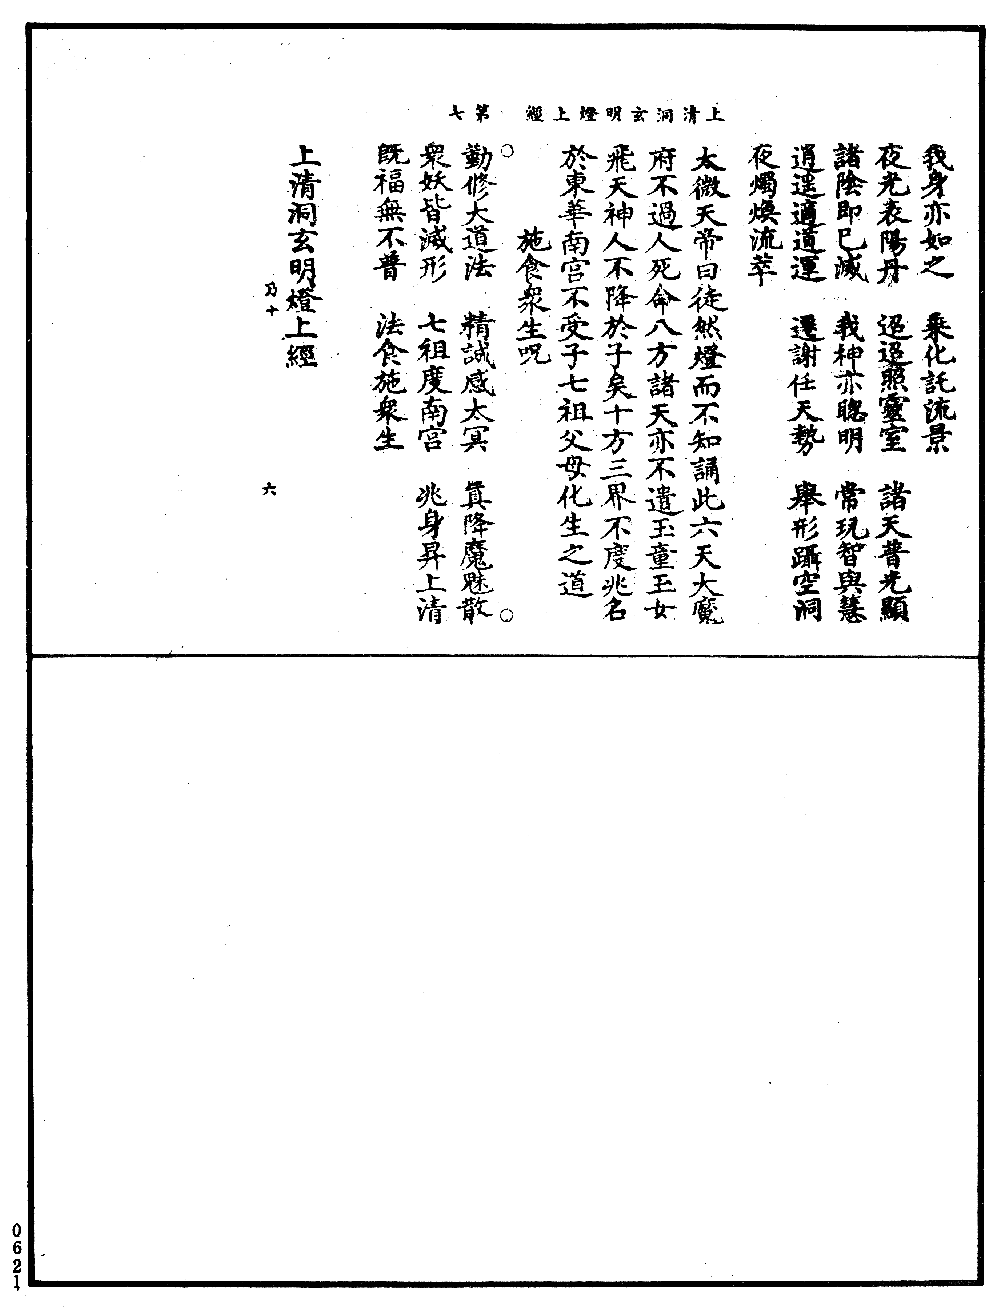 上清洞玄明燈上經　第七
我身亦如之　乘化託流景
夜光表陽丹　迢迢照靈室　諸天普光顯
諸陰即已滅　我神亦聰明　常玩智與慧
逍遥適道運　還謝任天勢　舉形躡空洞
夜燭煥流萃
太微天帝曰徒然燈而不知誦此六天大魔
府不過人死命八方諸天亦不遣玉童玉女
飛天神人不降於子矣十方三界不度兆名
於東華南宫不受子七祖父母化生之道
施食衆生呪
勤修大道法　精誠感太冥　真降魔魅散
衆妖皆滅形　七祖度南宫　兆身昇上清
既福無不普　法食施衆生
上清洞玄明燈上經
乃十　六
0621